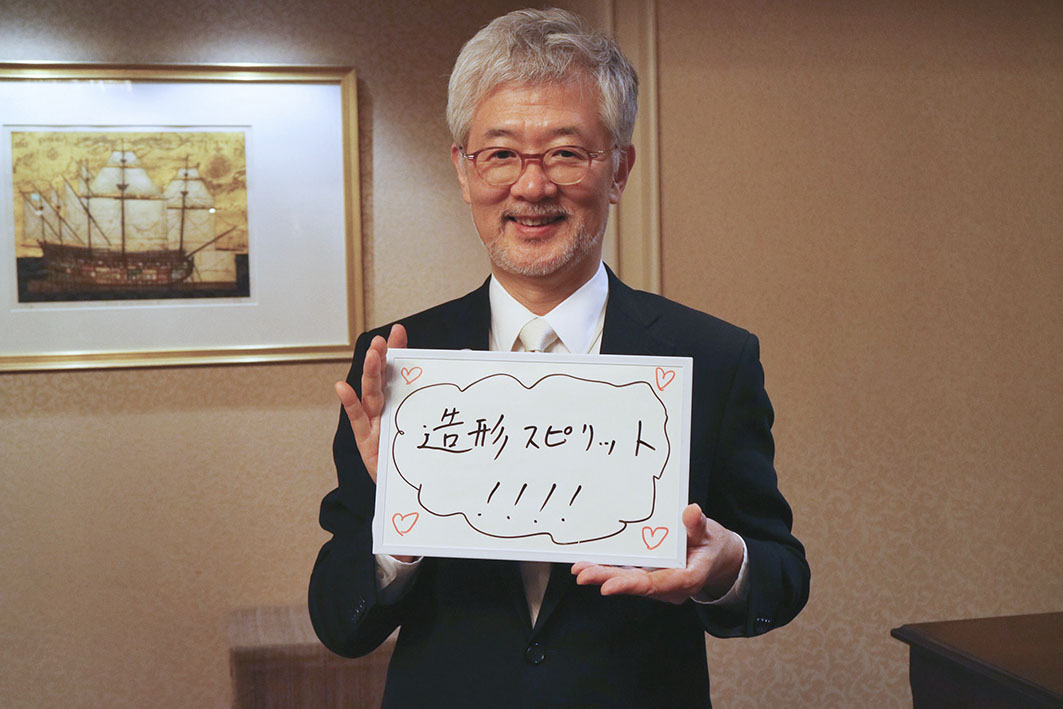 造形スピリット
!!!!